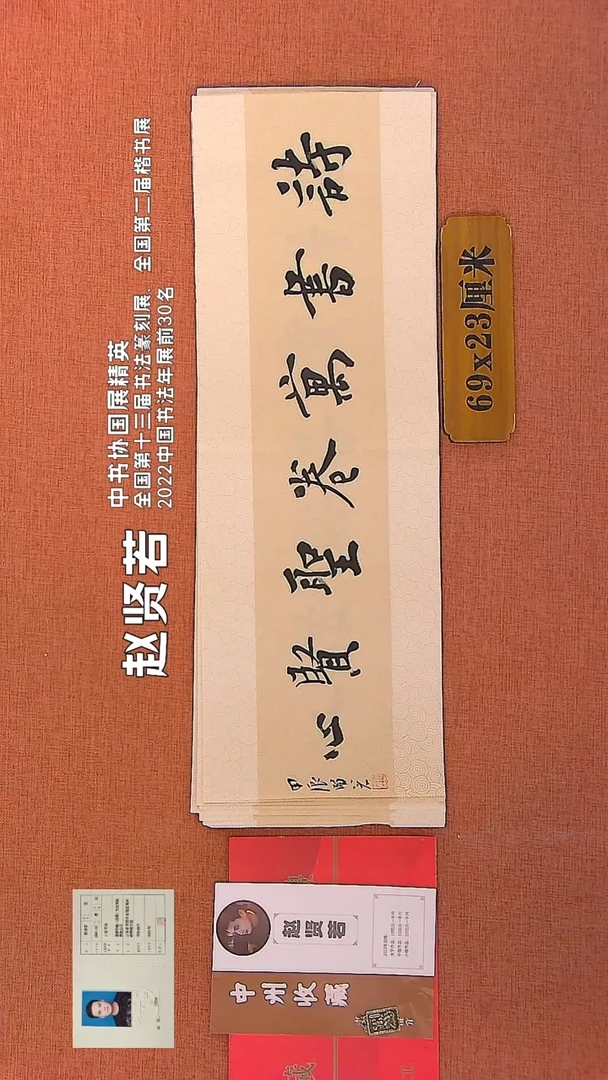 赵贤若
中书协国展精英
全国第十三届书法篆刻展、全国第二届楷书展
2022中国书法年展前30名
詩書萬卷聖賢心
甲辰
69x23厘米
赵贤若
中州收藏